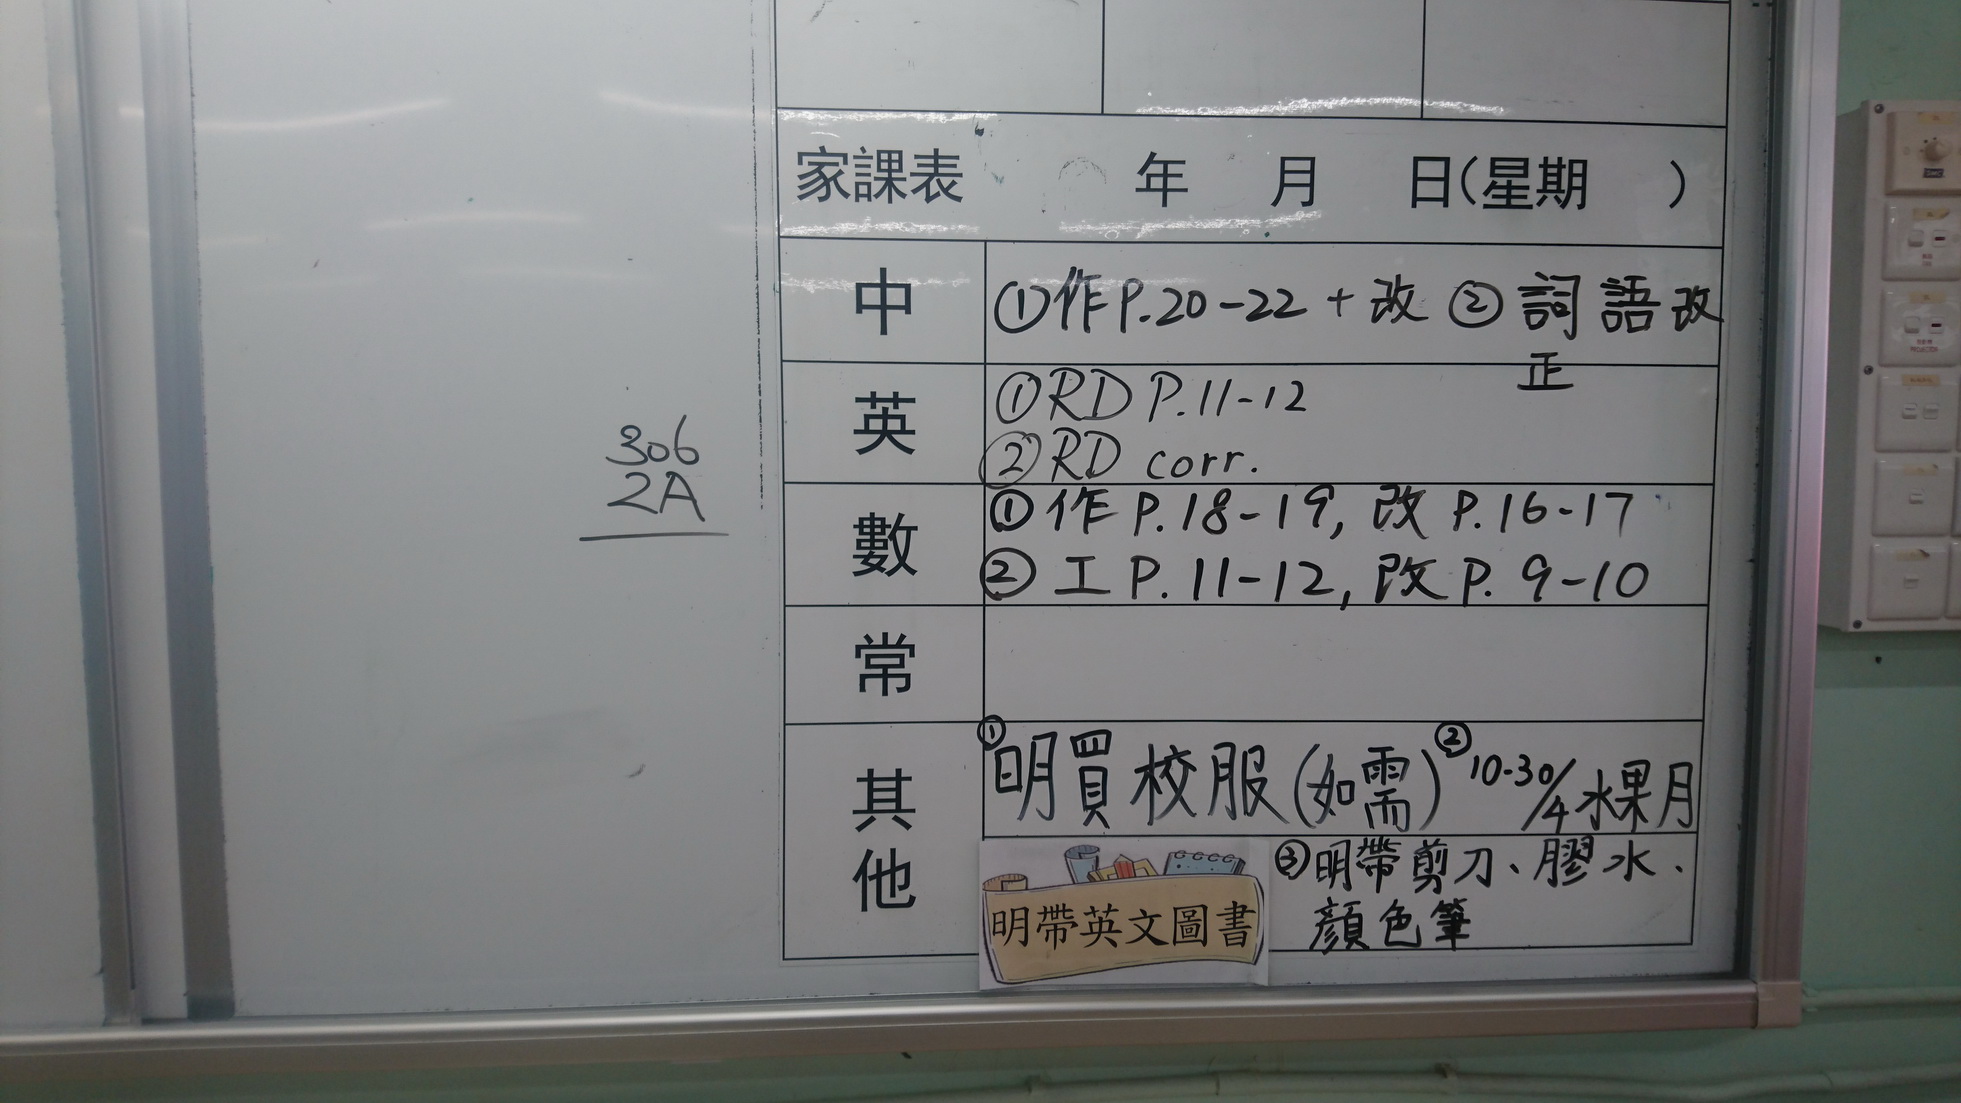 家課表 年 月 日(星期 )
中 ①作P.20-22 + 改 ②詞語改
正
英 ①RD P.11-12
②RD corr.
數 ①作 P.18-19, 改 P.16-17
②工 P.11-12, 改 P. 9-10
常
其他 ①明買校服(如需) ②10-30/4水果月
③明帶剪刀、膠水、
顏色筆
明帶英文圖書
306
2A